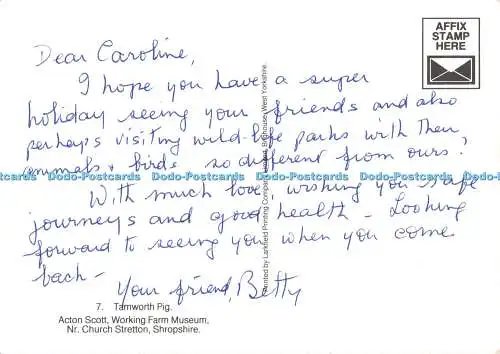 AFFIX
STAMP
HERE
Dear Caroline,
I hope you have a super
holiday seeing your friends and also
perhaps visiting wild-life parks with their
animals & birds so different from ours!
Dodo-Postcards Dodo-Postcards Dodo-Postcards Dodo-Postcards Dodo-Postcards Dodo-Postcards
With much love, wishing you safe
journeys and good health - Looking
forward to seeing you when you come
back -
Your friend, Betty
7. Tamworth Pig.
Acton Scott, Working Farm Museum,
Nr. Church Stretton, Shropshire.
Printed by Larkfield Printing Company Limited, Brighouse, West Yorkshire.